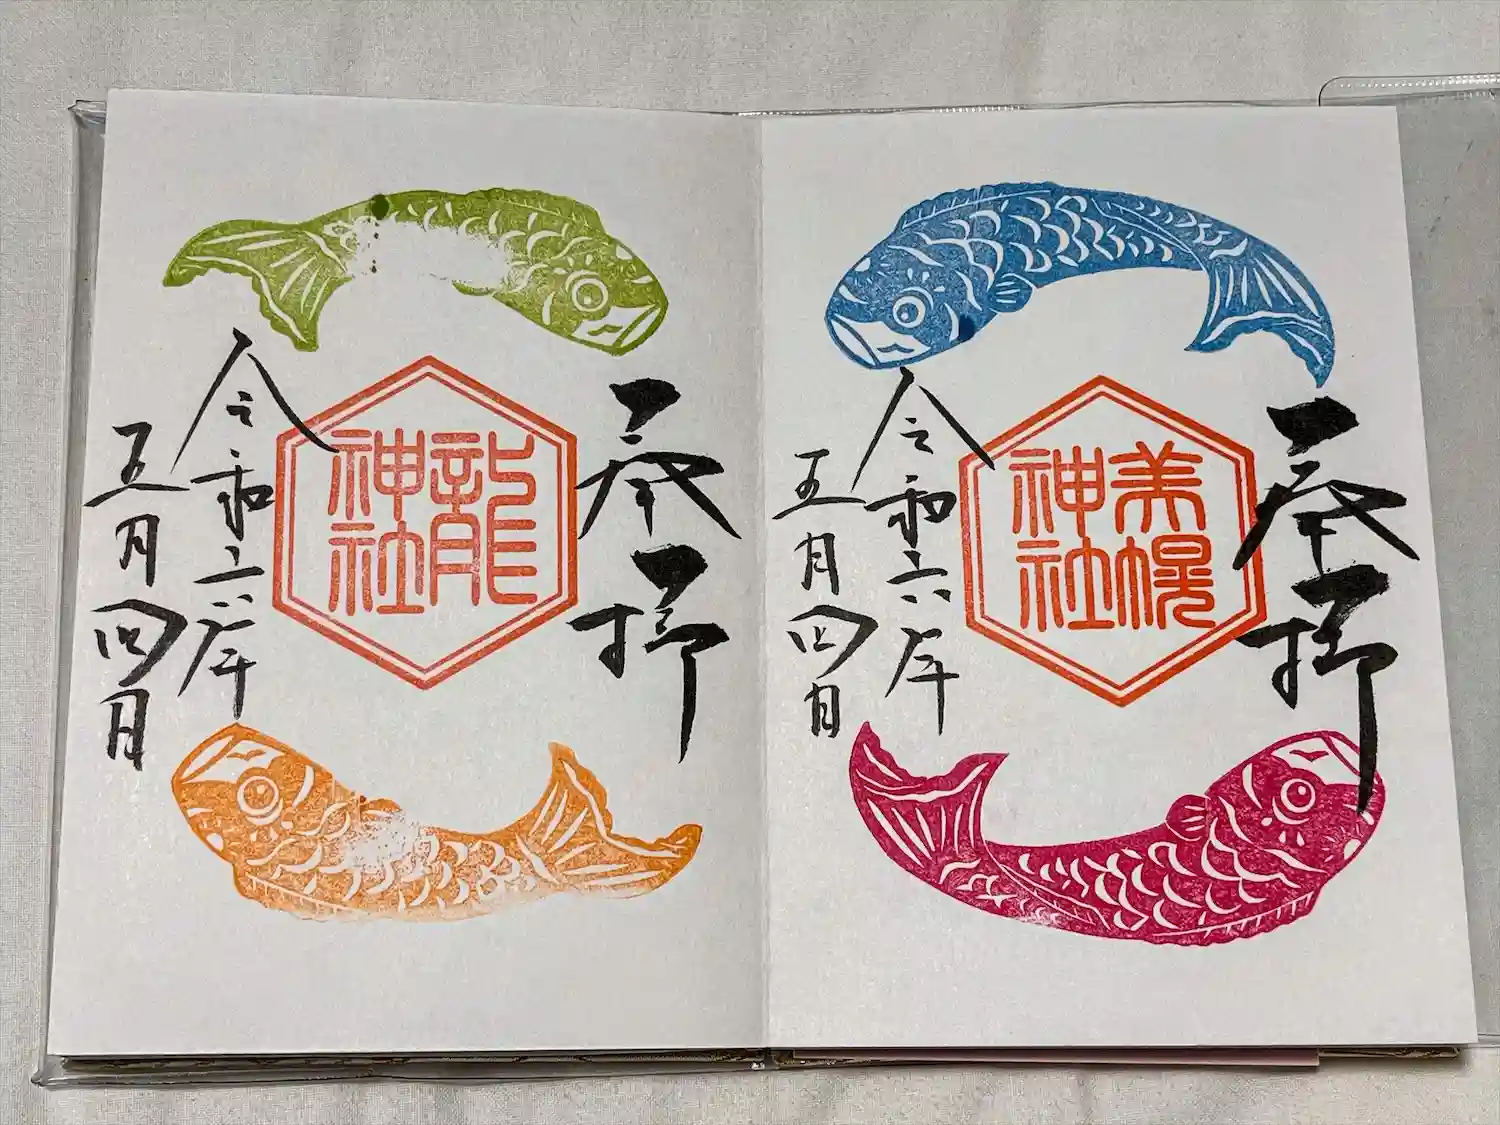 奉拝
美幌
神社
令和六年
五月四日
奉拝
龍
神社
令和六年
五月四日